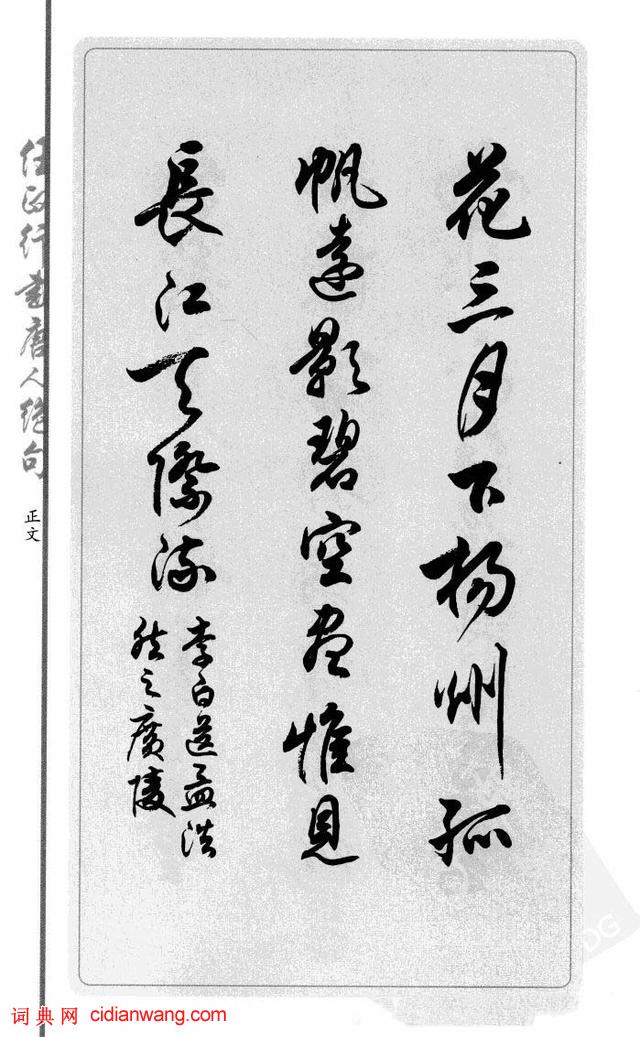 花三月下揚州孤
帆遠影碧空盡惟見
長江天際流
李白送孟浩
然之廣陵
任政行書唐人絕句
正文
词典网 cidianwang.com
DG